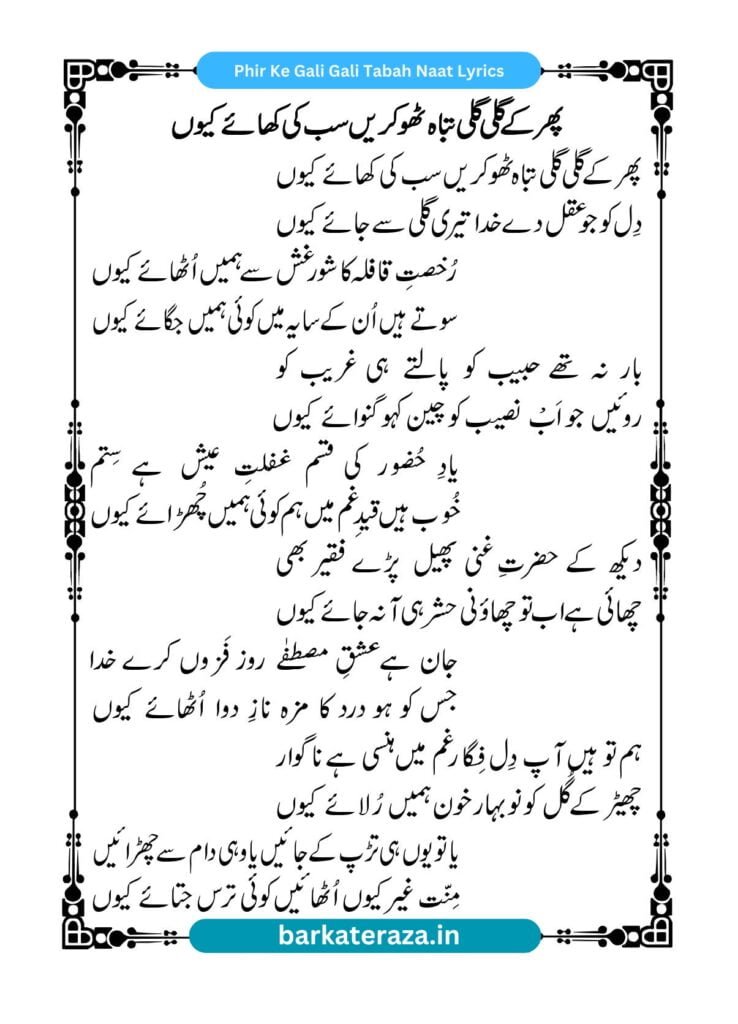 Phir Ke Gali Gali Tabah Naat Lyrics
پھر کے گلی گلی تباہ ٹھوکریں سب کی کھائے کیوں
پھر کے گلی گلی تباہ ٹھوکریں سب کی کھائے کیوں
دِل کو جو عقل دے خدا تیری گلی سے جائے کیوں
رُخصتِ قافلہ کا شور غش سے ہمیں اُٹھائے کیوں
سوتے ہیں اُن کے سایہ میں کوئی ہمیں جگائے کیوں
بار نہ تھے حبیب کو پالتے ہی غریب کو
روئیں جو اَبْ نصیب کو چین کہو گنوائے کیوں
یادِ حُضور کی قسم غفلتِ عیش ہے سِتم
خُوب ہیں قیدِ غم میں ہم کوئی ہمیں چُھڑائے کیوں
دیکھ کے حضرتِ غنی پھیل پڑے فقیر بھی
چھائی ہے اب تو چھاؤنی حشر ہی آ نہ جائے کیوں
جان ہے عشقِ مصطفٰے روز فَزوں کرے خدا
جس کو ہو درد کا مزہ نازِ دوا اُٹھائے کیوں
ہم تو ہیں آپ دِل فِگار غم میں ہنسی ہے ناگوار
چھیڑ کے گُل کو نوبہار خون ہمیں رُلائے کیوں
یا تو یوں ہی تڑپ کے جائیں یا وہی دام سے چھڑائیں
مِنّت غیر کیوں اُٹھائیں کوئی ترس جتائے کیوں
barkateraza.in